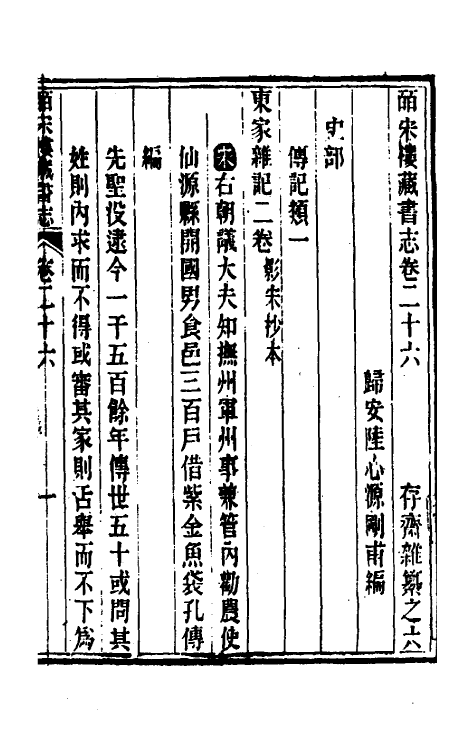 皕宋樓藏書志卷二十六　存齋雜纂之六
歸安陸心源剛甫編
史部
傳記類一
東家雜記二卷 影宋抄本
宋右朝議大夫知撫州軍州事兼管內勸農使
仙源縣開國男食邑三百戶借紫金魚袋孔傳
編
先聖没逮今一千五百餘年傳世五十或問其
姓則內求而不得或審其家則舌舉而不下爲
皕宋樓藏書志 卷二十六 一